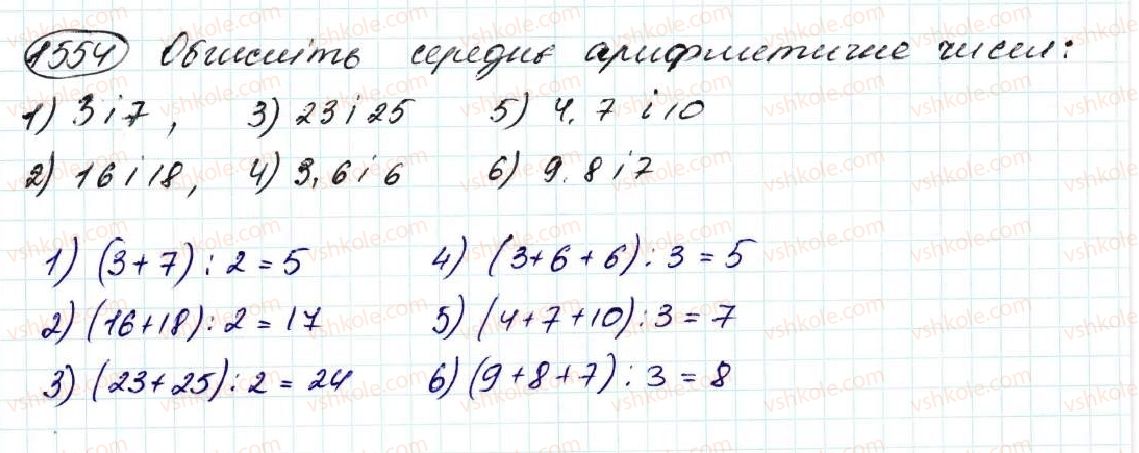 1554 Обчисліть середнє арифметичне чисел:
1) 3 і 7, 3) 23 і 25 5) 4, 7 і 10
2) 16 і 18, 4) 3, 6 і 6 6) 9, 8 і 7
1) (3+7) : 2 = 5 4) (3+6+6) : 3 = 5
2) (16+18) : 2 = 17 5) (4+7+10) : 3 = 7
3) (23+25) : 2 = 24 6) (9+8+7) : 3 = 8
vshkole.com